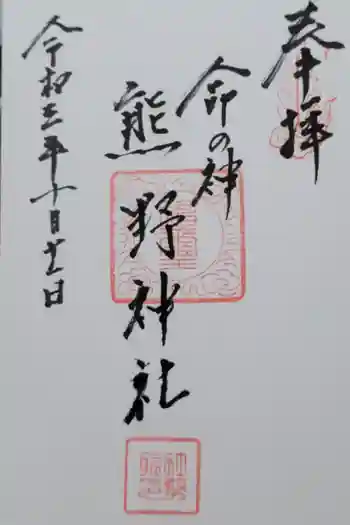 奉拝
命の神
熊野神社
令和三年十月十一日